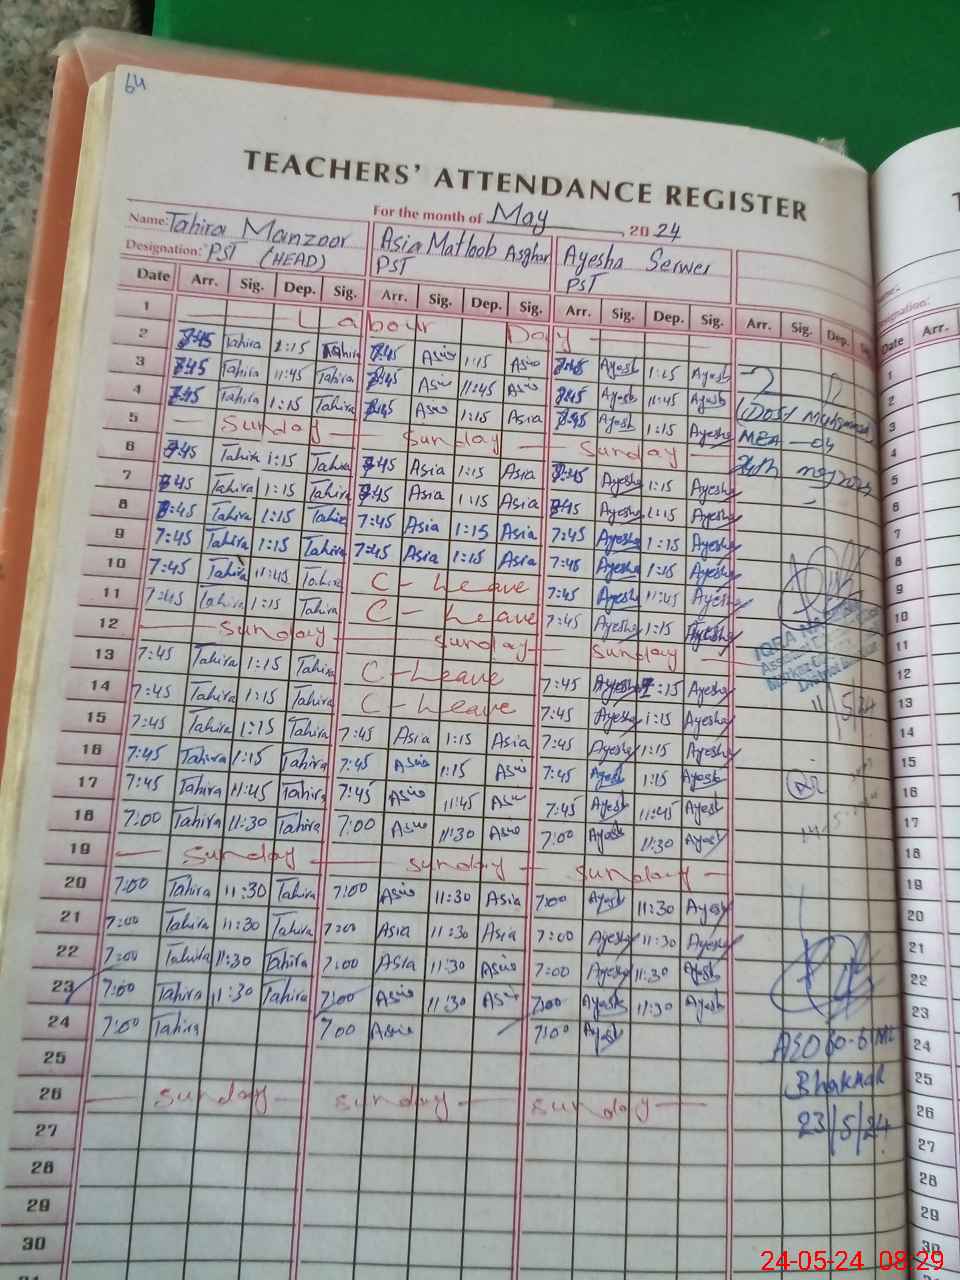 64
TEACHERS' ATTENDANCE REGISTER
For the month of May 2024
Name: Tahira Manzoor Asia Matloob Asghar Ayesha Serwer
Designation: PST (HEAD) PST PST
Date Arr. Sig. Dep. Sig. Arr. Sig. Dep. Sig. Arr. Sig. Dep. Sig. Arr. Sig. Dep.
1 Labour Day
2 7:45 Tahira 1:15 Tahira 7:45 Asia 1:15 Asia 7:45 Ayesh 1:15 Ayesh
3 7:45 Tahira 11:45 Tahira 7:45 Asia 11:45 Asia 7:45 Ayesh 11:45 Ayesh
4 7:45 Tahira 1:15 Tahira 7:45 Asia 1:15 Asia 7:45 Ayesh 1:15 Ayesha
5 Sunday Sunday Sunday
6 7:45 Tahira 1:15 Tahira 7:45 Asia 1:15 Asia 7:45 Ayesha 1:15 Ayesha
7 7:45 Tahira 1:15 Tahira 7:45 Asia 1:15 Asia 7:45 Ayesha 1:15 Ayesha
8 7:45 Tahira 1:15 Tahira 7:45 Asia 1:15 Asia 7:45 Ayesha 1:15 Ayesha
9 7:45 Tahira 1:15 Tahira 7:45 Asia 1:15 Asia 7:45 Ayesha 1:15 Ayesha
10 7:45 Tahira 11:45 Tahira C-Leave 7:45 Ayesha 11:45 Ayesha
11 7:45 Tahira 1:15 Tahira C-Leave 7:45 Ayesha 1:15 Ayesha
12 Sunday Sunday Sunday
13 7:45 Tahira 1:15 Tahira C-Leave 7:45 Ayesha 1:15 Ayesha
14 7:45 Tahira 1:15 Tahira C-Leave 7:45 Ayesha 1:15 Ayesha
15 7:45 Tahira 1:15 Tahira 7:45 Asia 1:15 Asia 7:45 Ayesha 1:15 Ayesha
16 7:45 Tahira 1:15 Tahira 7:45 Asia 1:15 Asia 7:45 Ayesh 1:15 Ayesh
17 7:45 Tahira 11:45 Tahira 7:45 Asia 11:45 Asia 7:45 Ayesh 11:45 Ayesh
18 7:00 Tahira 11:30 Tahira 7:00 Asia 11:30 Asia 7:00 Ayesh 11:30 Ayesh
19 Sunday Sunday Sunday
20 7:00 Tahira 11:30 Tahira 7:00 Asia 11:30 Asia 7:00 Ayesh 11:30 Ayesh
21 7:00 Tahira 11:30 Tahira 7:00 Asia 11:30 Asia 7:00 Ayesha 11:30 Ayesha
22 7:00 Tahira 11:30 Tahira 7:00 Asia 11:30 Asia 7:00 Ayesha 11:30 Ayesh
23 7:00 Tahira 11:30 Tahira 7:00 Asia 11:30 Asia 7:00 Ayesh 11:30 Ayesh
24 7:00 Tahira 7:00 Asia 7:00 Ayesh
25
26 Sunday Sunday Sunday
27
28
29
30
MEA - 04
IQRA
14-5-
Bhakkar
23/5/24
Date Arr.
1
2
3
4
5
6
7
8
9
10
11
12
13
14
15
16
17
18
19
20
21
22
23
24
25
26
27
28
29
30
24-05-24 08:29